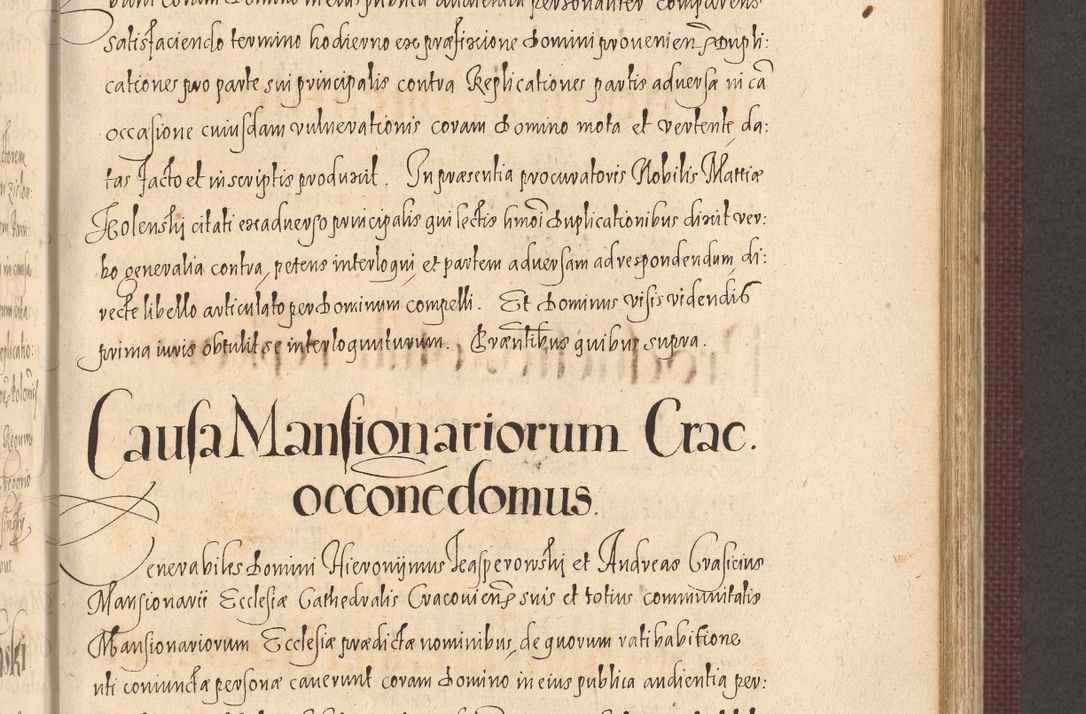 coram Domino in eius publica audientia personaliter comparens
satisfaciendo termino hodierno ex præfixione Domini provenien. Dupli:
cationes pro parte sui principalis contra Replicationes partis adversæ in cã
occasione cuiusdam vulnerationis coram Domino mota et vertente da:
tas facto et in scriptis produxit. In præsentia procuratoris Nobilis Mattiæ
Kolenskj citati ex adverso principalis qui lectis hmoi Duplicationibus dixit ver:
bo generalia contra, petens interloqui et partem adversam ad respondendum di:
recte libello articulato per Dominum compelli. Et Dominus visis videndis
prima iuris obtulit se interloquuturum. Præntibus quibus supra.
Causa Mansionariorum Crac.
occone domus.
Venerabiles Domini Hieronijmus Kasperowskj et Andreas Crasicius
Mansionarii Ecclesiæ Cathedralis Cracovien. suis et totius communitatis
Mansionariorum Ecclesiæ prædictæ nominibus, de quorum ratihabitione
uti coniunctæ personæ caverunt coram Domino in eius publica audientia per: